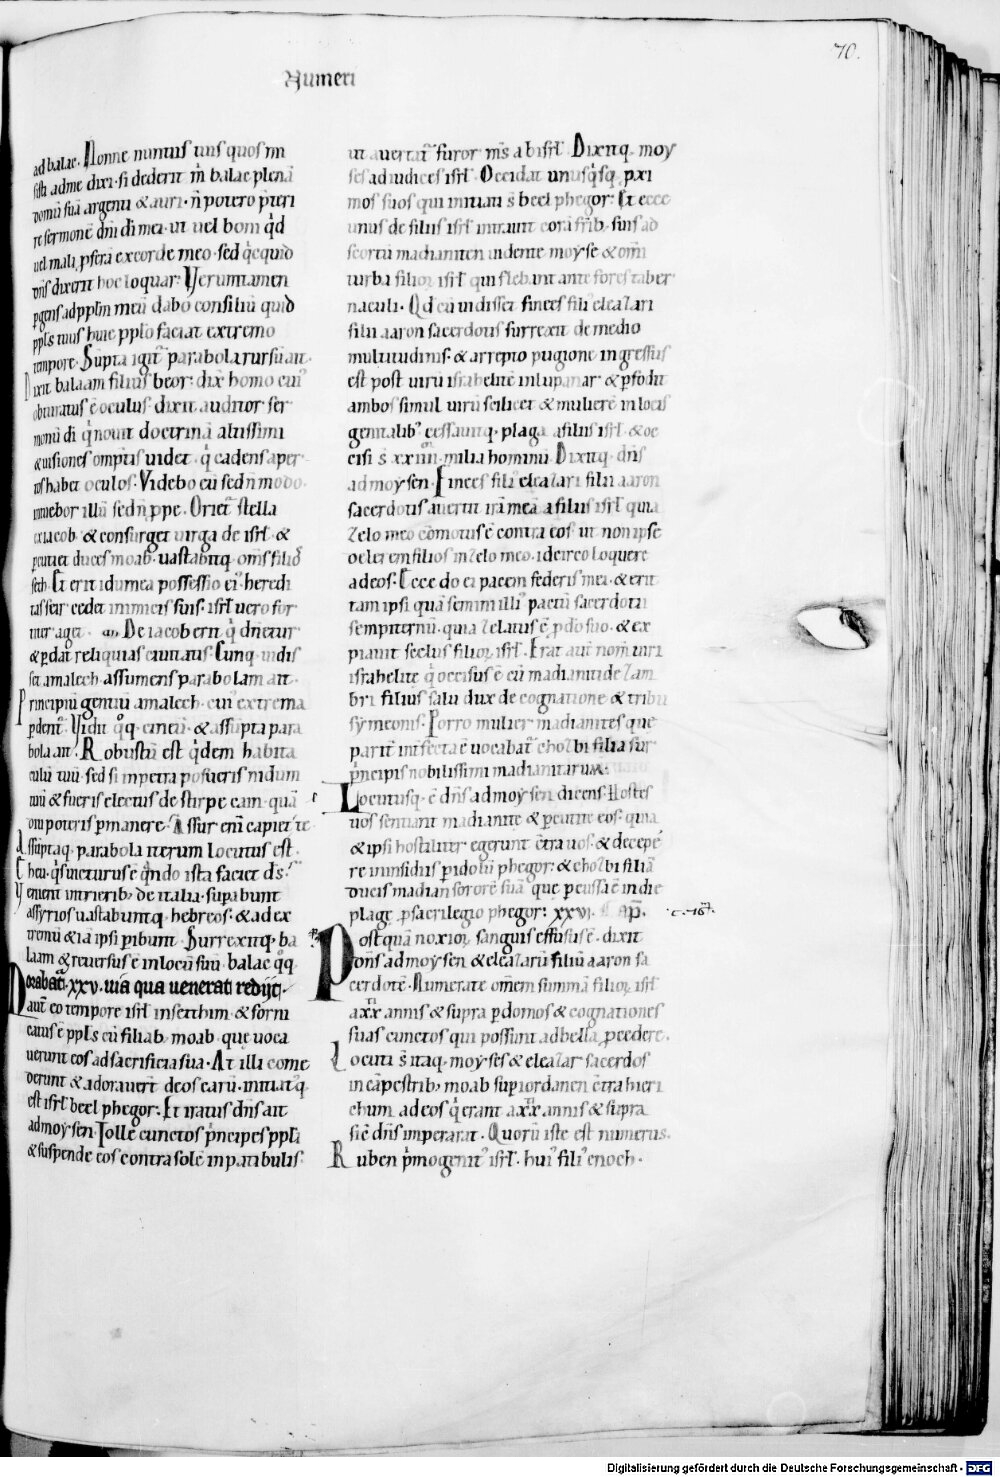 70.
Numeri
ad balac. Nonne nuntiis tuis quos mi
sisti ad me dixi. si dederit m̄ balac plenā
domū suā argenti & auri. n̄ potero p̄teri
re sermonē dn̄i di mei. ut uel boni qͥd
uel mali pferā ex corde meo. sed qͥcquid
dn̄s dixerit hoc loquar. Verumtamen
pgens ad pplm meū dabo consiliū quid
ppls tuus huic pplo faciat extremo
tempore. Sūpta igit᷑ parabola rursū ait.
Dixit balaam filius beor. dix̄ homo cui᾽
obturatus ē oculus. dixit auditor ser
monū di qͥ nouit doctrinā altissimi
& uisiones omp̄tis uidet. qͥ cadens aper
tos habet oculos. Videbo eū sed n̄ modo.
intuebor illū sed n̄ ppe. Oriet᷑ stella
ex iacob & consurget uirga de isrl̄ &
pcutiet duces moab. uastabitq. om̄s filios
seth. Et erit idumea possessio ei᾽. heredi
tas seir cedet inimicis suis. isrl̄ uero for
titer aget. De iacob erit qͥ dn̄etur
& pdat reliquias ciuitatis. Cunq. uidis
set amalech assumens parabolam ait.
Principiū gentiū amalech. cui᾽ extrema
pdent᷑. Vidit qͦq. cineū. & assūpta para
bola ait. Robustū est qͥdem habita
culū tuū. sed si in petra posueris nidum
tuū & fueris electus de stirpe cain. quā
diu poteris pmanere. Assur enī capiet te
Assūptaq. parabola iterum locutus est.
Eheu. qͥs uicturus ē qͣndo ista faciet ds̄.
Venient in trierib; de italia. supabunt
assyrios uastabuntq. hebreos. & ad ex
tremū & iā ipsi pibunt. Surrexitq. ba
laam & reuersus ē in locū suū. balac qͦq.
.xxv. uia qua uenerat rediit.
Morabat᷑
aut̄ eo tempore isrl̄ in setthim. & forni
catus ē ppls cū filiab. moab. que uoca
uerunt eos ad sacrificia sua. At illi come
derunt & adorauert̄ deos earū. initiatq.
est isrl̄ beel phegor. Et iratus dn̄s ait
ad moysen. Tolle cunctos pͥncipes ppli
& suspende eos contra solē in patibulis.
ut auertat᷑ furor m̄s ab isrl̄. Dixitq. moy
ses ad iudices isrl̄. Occidat unusqͥsq. pxi
mos suos qui initiati s̄ beel phegor. Et ecce
unus de filiis isrl̄ intrauit corā frīb. suis ad
scortū madianiten uidente moyse & om̄i
turba filior. isrl̄ qui flebant ante fores taber
naculi. Qd cū uidisset finees fili᾽ eleazari
filii aaron sacerdotis surrexit de medio
multitudinis. & arrepto pugione ingressus
est post uirū israhelitē in lupanar & pfodit
ambos simul uirū scilicet & mulierē in locis
genitalib᾽. cessauitq. plaga a filiis isrl̄. & oc
cisi s̄ xxiiii milia hominū. Dixitq. dn̄s
ad moysen. Finees fili᾽ eleazari filii aaron
sacerdotis auertit irā meā a filiis isrl̄ quia
zelo meo cōmotus ē contra eos. ut non ipse
delerem filios in zelo meo. idcirco loquere
ad eos. Ecce do ei pacem federis mei. & erit
tam ipsi quā semini illi᾽ pactū sacerdotii
sempiternū. quia zelatus ē p do suo. & ex
piauit scelus filior. isrl̄. Erat aut̄ nom̄ uiri
israhelite qͥ occisus ē cū madianitide zam
bri filius salu dux de cognatione & tribu
symeonis. Porro mulier madianites que
parit̄ int̄fecta ē uocabat᷑ chozbi filia sur
pͥncipis nobilissimi madianitarum.
Locutusq. ē dn̄s ad moysen dicens. Hostes
uos sentiant madianite & pcutite eos. quia
& ipsi hostiliter egerunt cͣtra uos. & decepē
re in insidiis p idolū phegor. & chozbi filiā
ducis madian sororē suā que pcussa ē in die
plage p sacrilegio phegor. xxvi.
Postquā noxior. sanguis effusus ē. dixit
dn̄s ad moysen & eleazarū filiū aaron sa
cerdotē. Numerate om̄em summā filior. isrl̄
a xx annis & supra p domos & cognationes
suas cunctos qui possunt ad bella pcedere.
Locuti s̄ itaq. moyses & eleazar sacerdos
in cāpestrib; moab sup iordanen cͣtra hieri
chum. ad eos qͥ erant a xx annis & supra
sic̄ dn̄s imperarat. Quorū iste est numerus.
Ruben pͥmogenit᾽ isrl̄. hui᾽ fili᾽ enoch.
Digitalisierung gefördert durch die Deutsche Forschungsgemeinschaft - DFG